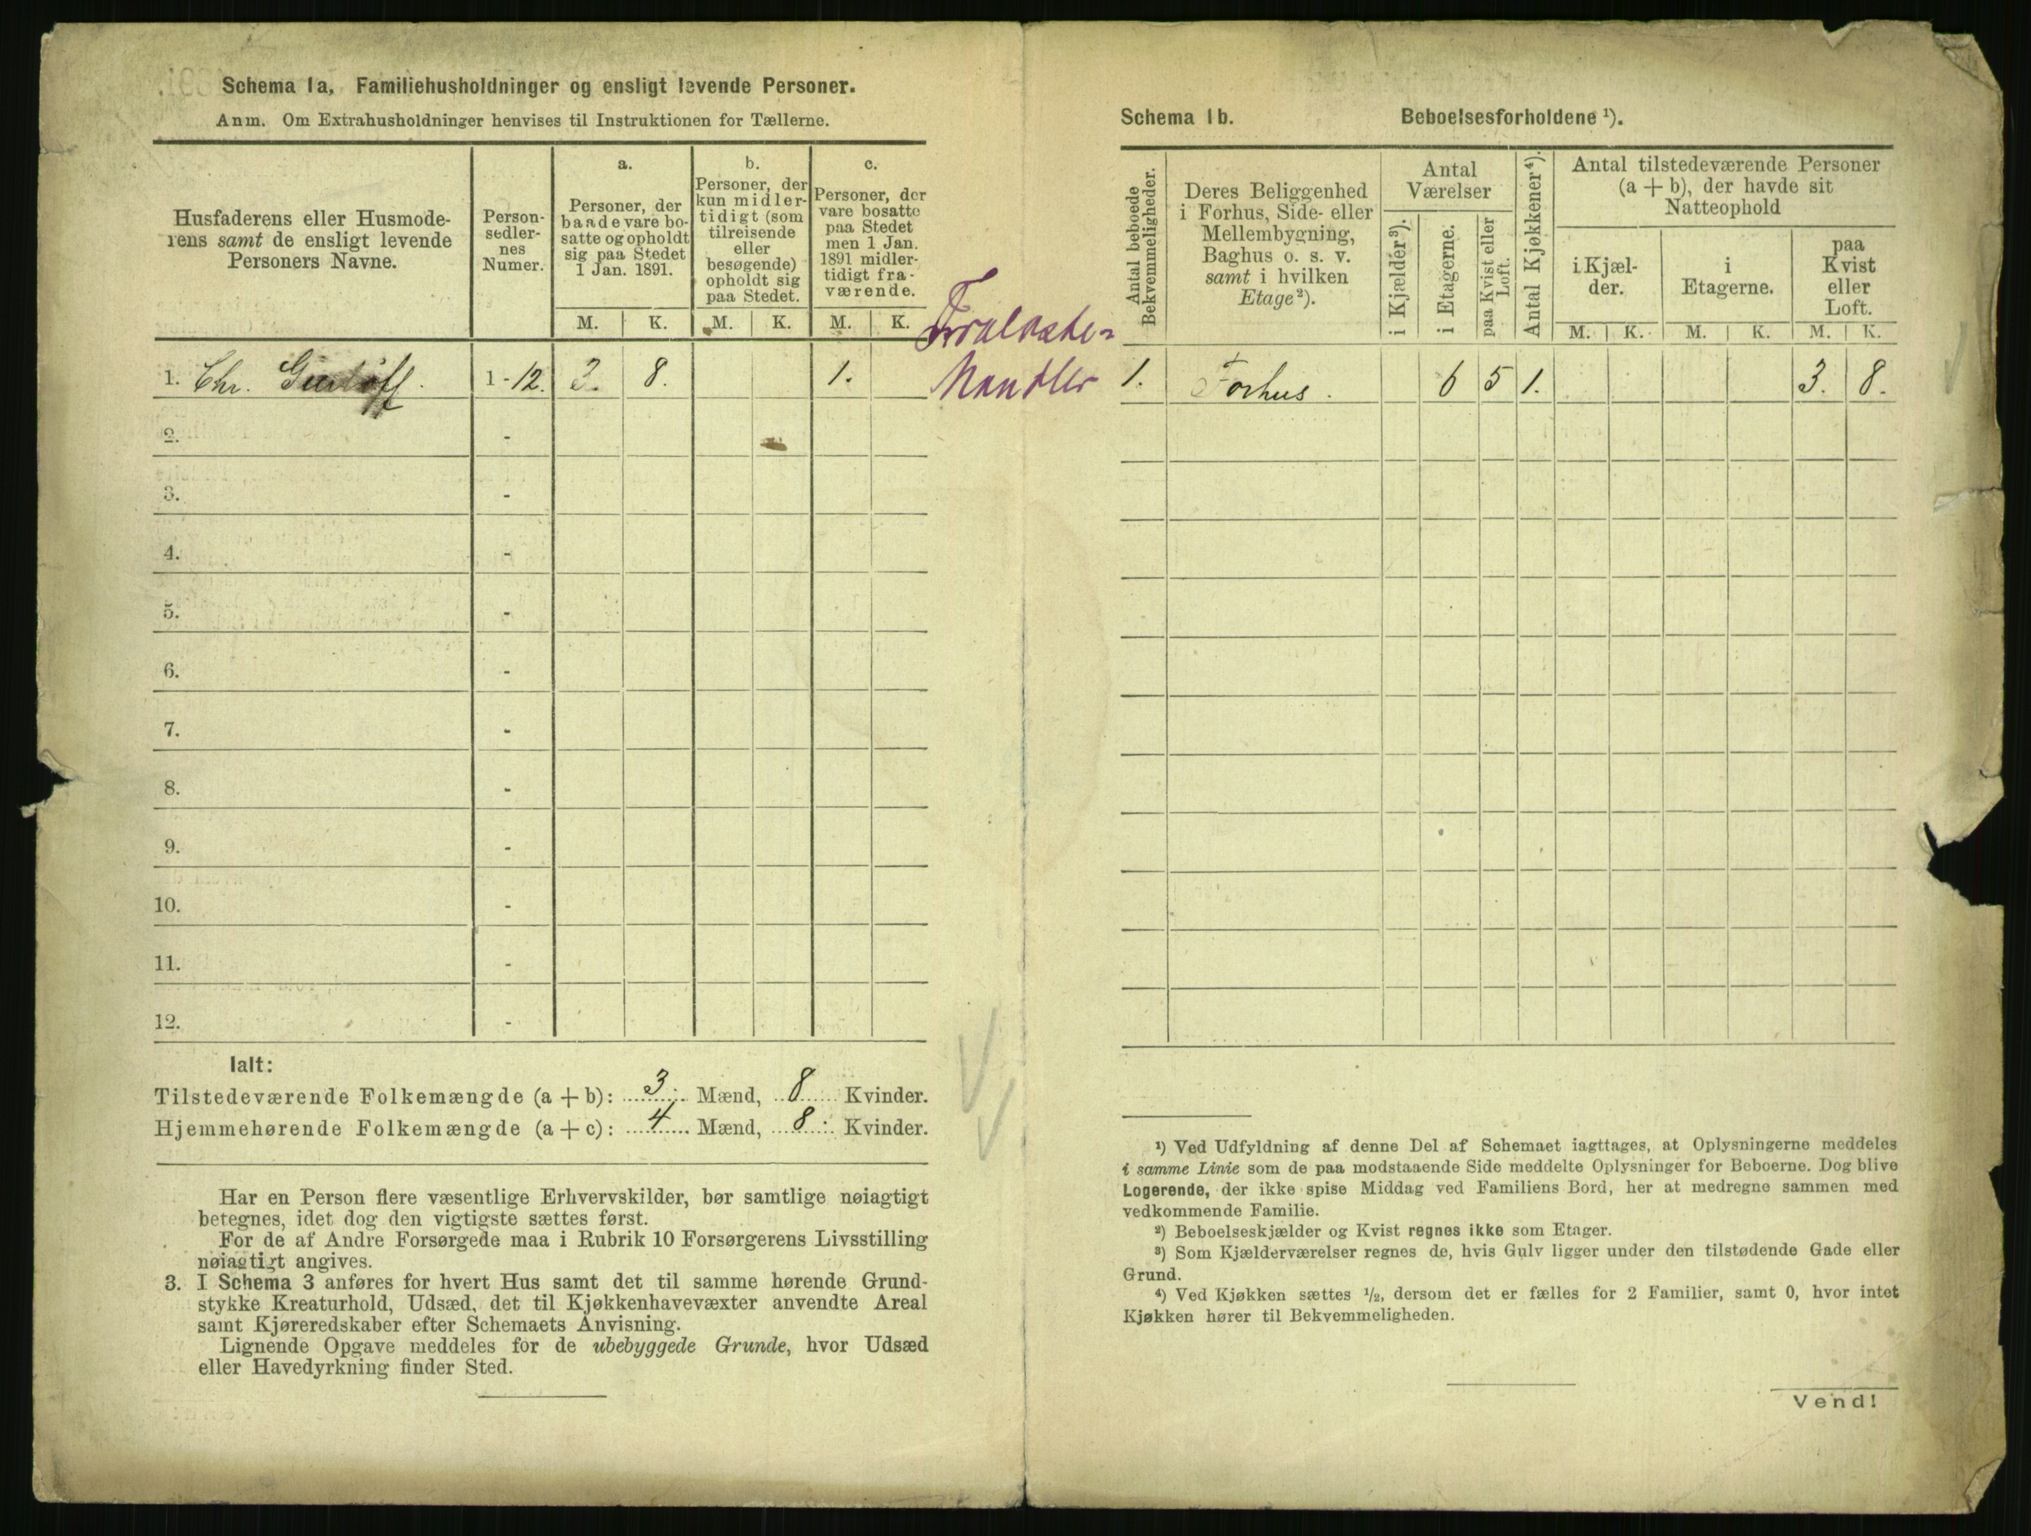 Schema 1a, Familiehusholdninger og ensligt levende Personer.
Anm. Om Extrahusholdninger henvises til Instruktionen for Tællerne.
Husfaderens eller Husmode-
rens samt de ensligt levende
Personers Navne.
Person-
sedler-
nes
Numer.
a.
Personer, der
baade vare bo-
satte og opholdt
sig paa Stedet
1 Jan. 1891.
b.
Personer, der
kun midler-
tidigt (som
tilreisende
eller
besøgende)
opholdt sig
paa Stedet.
c.
Personer, der
vare bosatte
paa Stedet
men 1 Jan.
1891 midler-
tidigt fra-
værende.
M. K. M. K. M. K.
1. Chr. 1-12. 3. 8. 1.
2. -
3. -
4. -
5. -
6. -
7. -
8. -
9. -
10. -
11. -
12. -
Ialt:
Tilstedeværende Folkemængde (a + b): 3. Mænd, 8. Kvinder.
Hjemmehørende Folkemængde (a + c): 4 Mænd, 8. Kvinder.
Har en Person flere væsentlige Erhvervskilder, bør samtlige nøiagtigt
betegnes, idet dog den vigtigste sættes først.
For de af Andre Forsørgede maa i Rubrik 10 Forsørgerens Livsstilling
nøiagtigt angives.
3. I Schema 3 anføres for hvert Hus samt det til samme hørende Grund-
stykke Kreaturhold, Udsæd, det til Kjøkkenhavevæxter anvendte Areal
samt Kjøreredskaber efter Schemaets Anvisning.
Lignende Opgave meddeles for de ubebyggede Grunde, hvor Udsæd
eller Havedyrkning finder Sted.
Mangler
Schema 1b. Beboelsesforholdene ¹).
Antal beboede
Bekvemmeligheder.
Deres Beliggenhed
i Forhus, Side- eller
Mellembygning,
Baghus o. s. v.
samt i hvilken
Etage²).
Antal
Værelser
i Kjælder³).
i Etagerne.
paa Kvist eller
Loft.
Antal Kjøkkener⁴).
Antal tilstedeværende Personer
(a + b), der havde sit
Natteophold
i Kjæl-
der.
i
Etagerne.
paa
Kvist
eller
Loft.
M. K. M. K. M. K.
1. Forhus. 6 5 1. 3. 8.
¹) Ved Udfyldning af denne Del af Schemaet iagttages, at Oplysningerne meddeles
i samme Linie som de paa modstaaende Side meddelte Oplysninger for Beboerne. Dog blive
Logerende, der ikke spise Middag ved Familiens Bord, her at medregne sammen med
vedkommende Familie.
²) Beboelseskjælder og Kvist regnes ikke som Etager.
³) Som Kjælderværelser regnes de, hvis Gulv ligger under den tilstødende Gade eller
Grund.
⁴) Ved Kjøkken sættes ½, dersom det er fælles for 2 Familier, samt 0, hvor intet
Kjøkken hører til Bekvemmeligheden.
Vend!